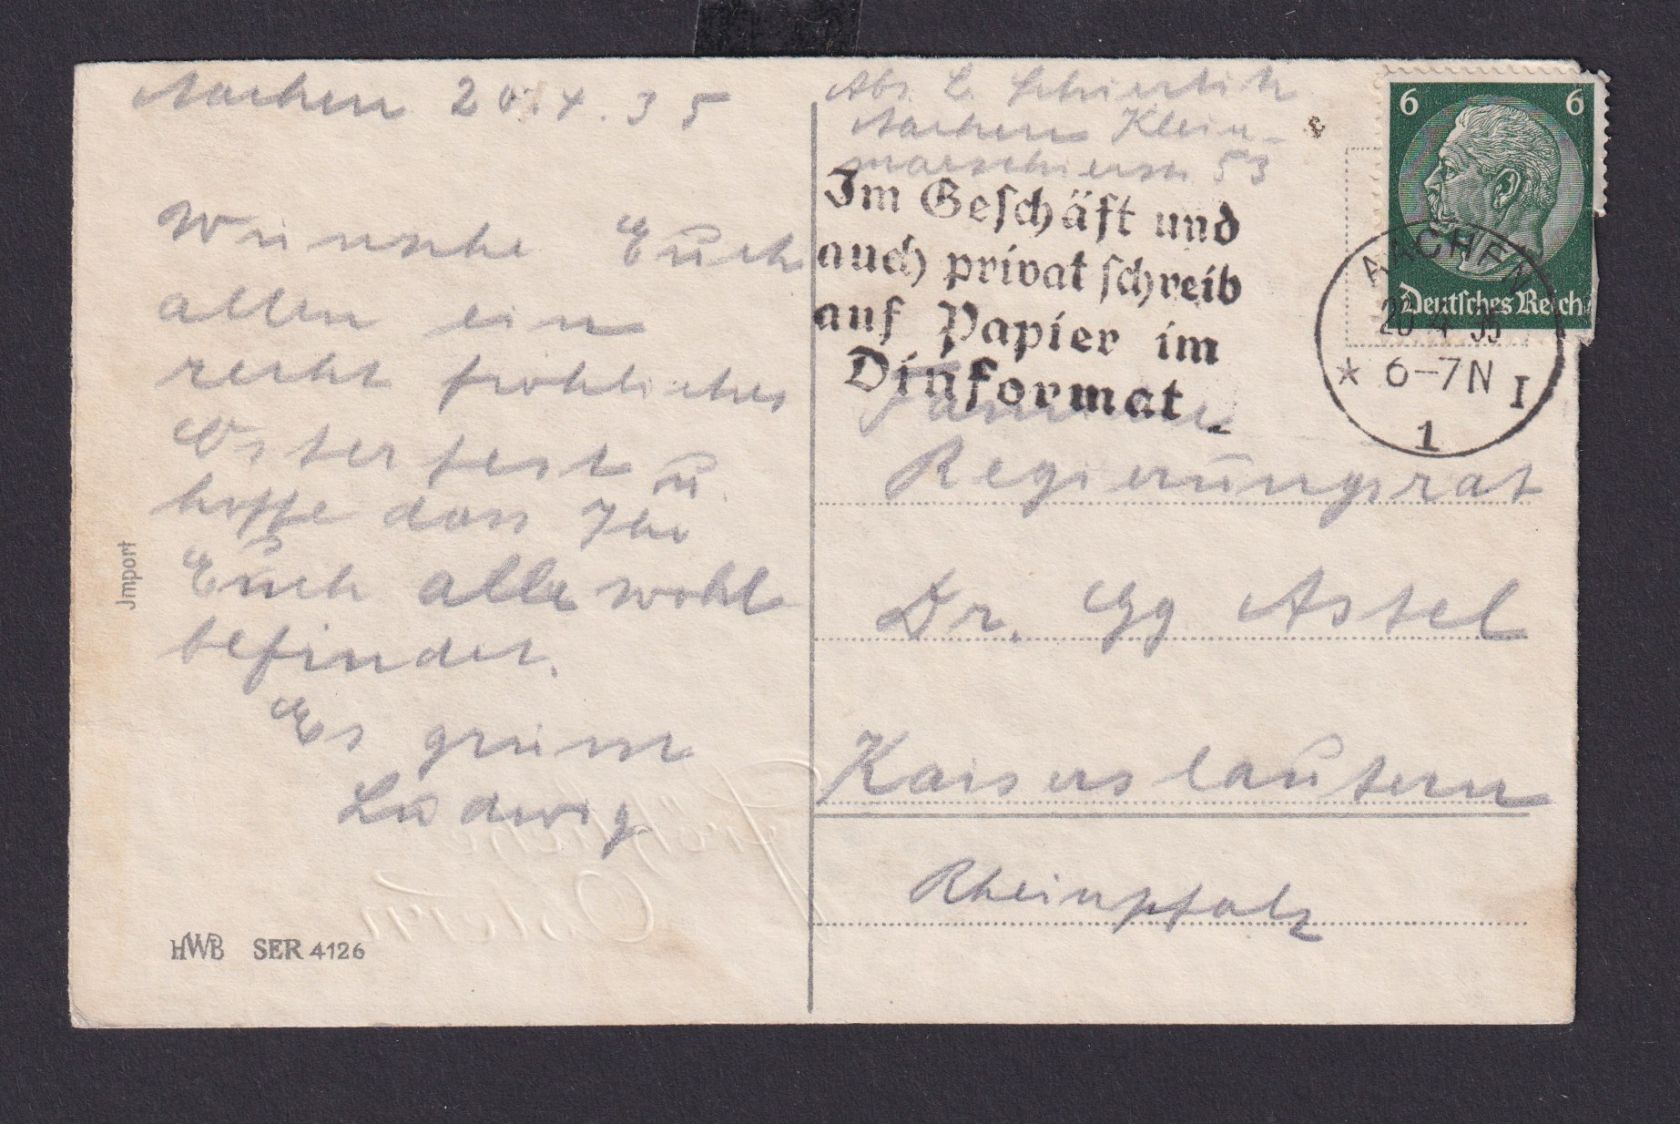 Aachen 20.4.35
Wünsche Euch
allen ein
recht fröhliches
Osterfest u.
hoffe dass Ihr
Euch alle wohl
befindet.
Es grüsst
Ludwig
Jmport
HWB SER 4126
Fröhliche
Ostern
Abs. L.
Aachen Klein-
marschierstr. 53
Im Geschäft und
auch privat schreib
auf Papier im
Dinformat
6 6
Deutsches Reich
AACHEN
20.4.35
* 6-7N I
1
Familie
Regierungsrat
Dr. Gg Astel
Kaiserslautern
Rheinpfalz